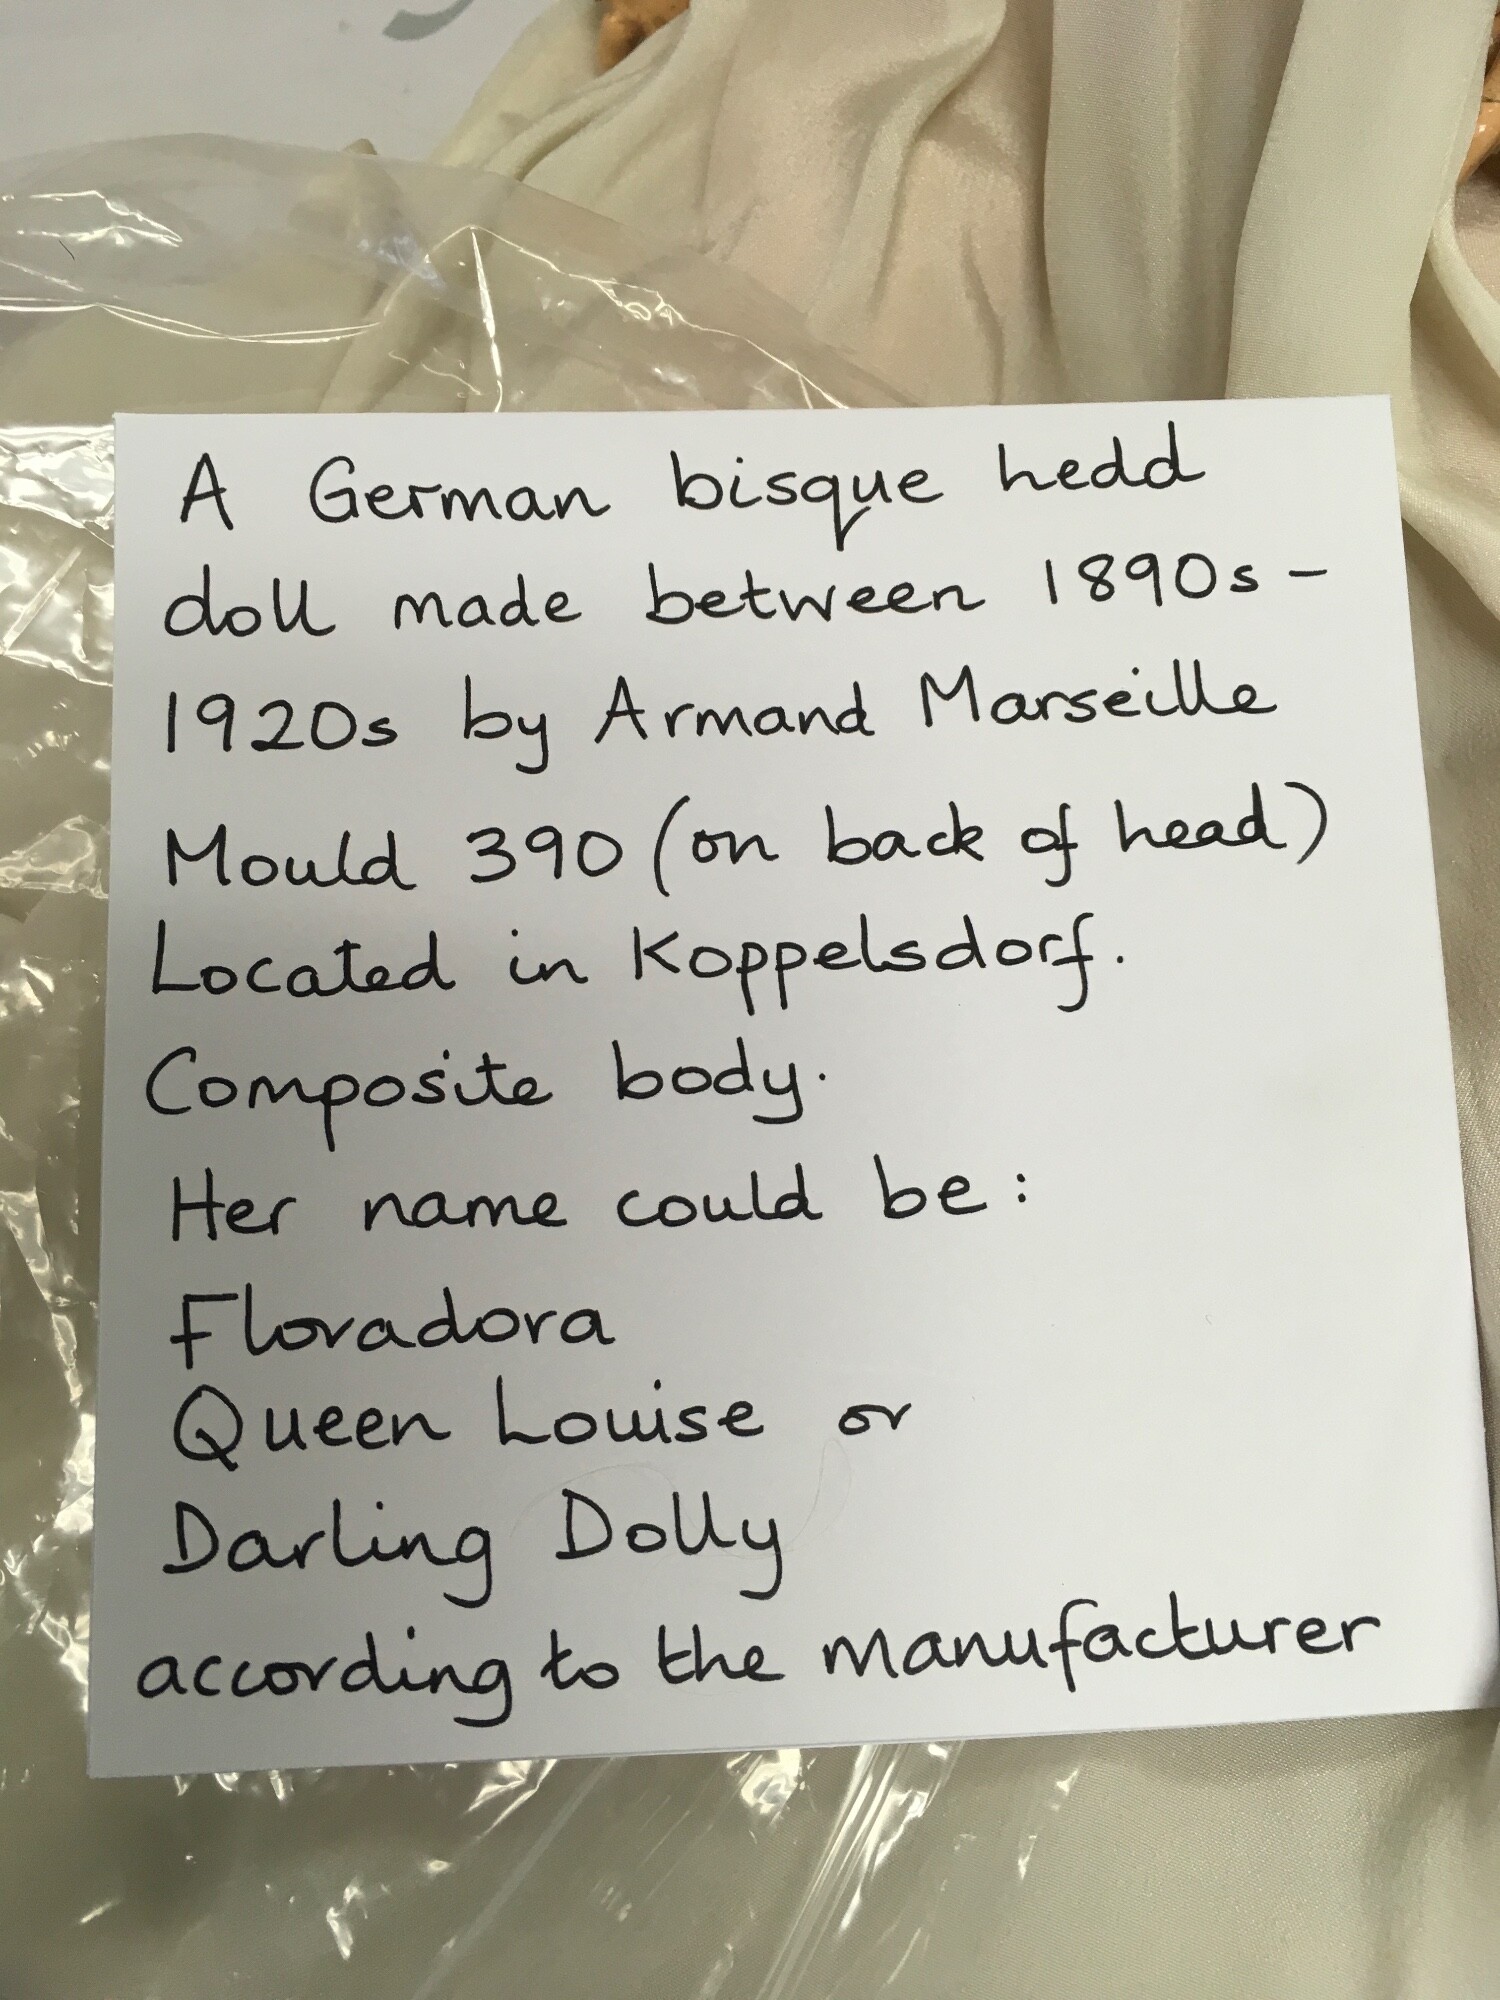 A German bisque hedd
doll made between 1890s -
1920s by Armand Marseille
Mould 390 (on back of head)
Located in Koppelsdorf.
Composite body.
Her name could be:
Floradora
Queen Louise or
Darling Dolly
according to the manufacturer